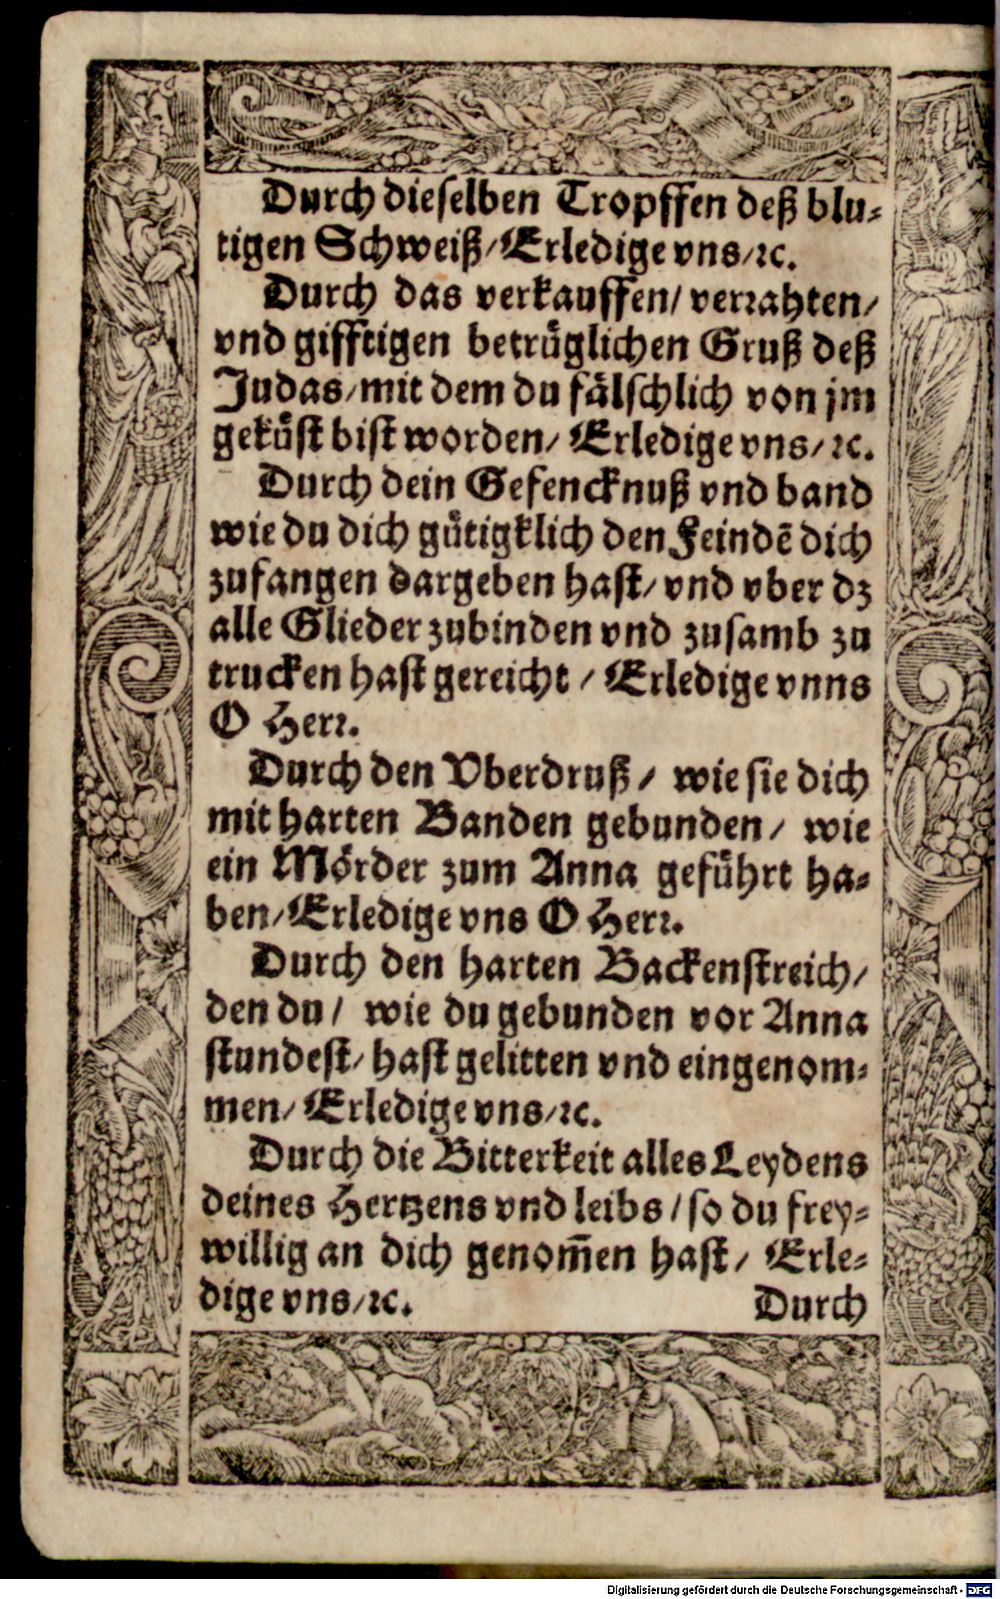 Durch dieselben Tropffen deß blu-
tigen Schweiß/ Erledige vns/ꝛc.
Durch das verkauffen/ verrahten/
vnd gifftigen betrüglichen Gruß deß
Judas/ mit dem du fälschlich von jm
geküst bist worden/ Erledige vns/ꝛc.
Durch dein Gefencknuß vnd band
wie du dich gütigklich den Feindē dich
zufangen dargeben hast/ vnd vber dz
alle Glieder zubinden vnd zusamb zu
trucken hast gereicht / Erledige vnns
O Herr.
Durch den Vberdruß/ wie sie dich
mit harten Banden gebunden/ wie
ein Mörder zum Anna geführt ha-
ben/ Erledige vns O Herr.
Durch den harten Backenstreich/
den du/ wie du gebunden vor Anna
stundest/ hast gelitten vnd eingenom-
men/ Erledige vns/ꝛc.
Durch die Bitterkeit alles Leydens
deines Hertzens vnd leibs / so du frey-
willig an dich genom̄en hast/ Erle-
dige vns/ꝛc. Durch
Digitalisierung gefördert durch die Deutsche Forschungsgemeinschaft - DFG